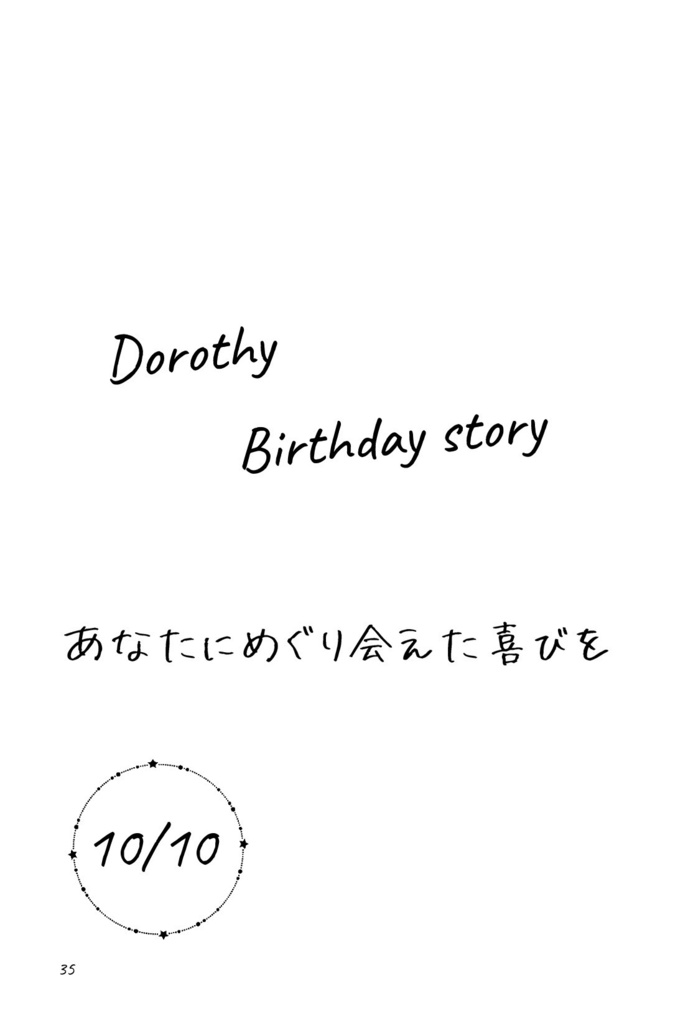 Dorothy
Birthday story
あなたにめぐり会えた喜びを
10/10
35